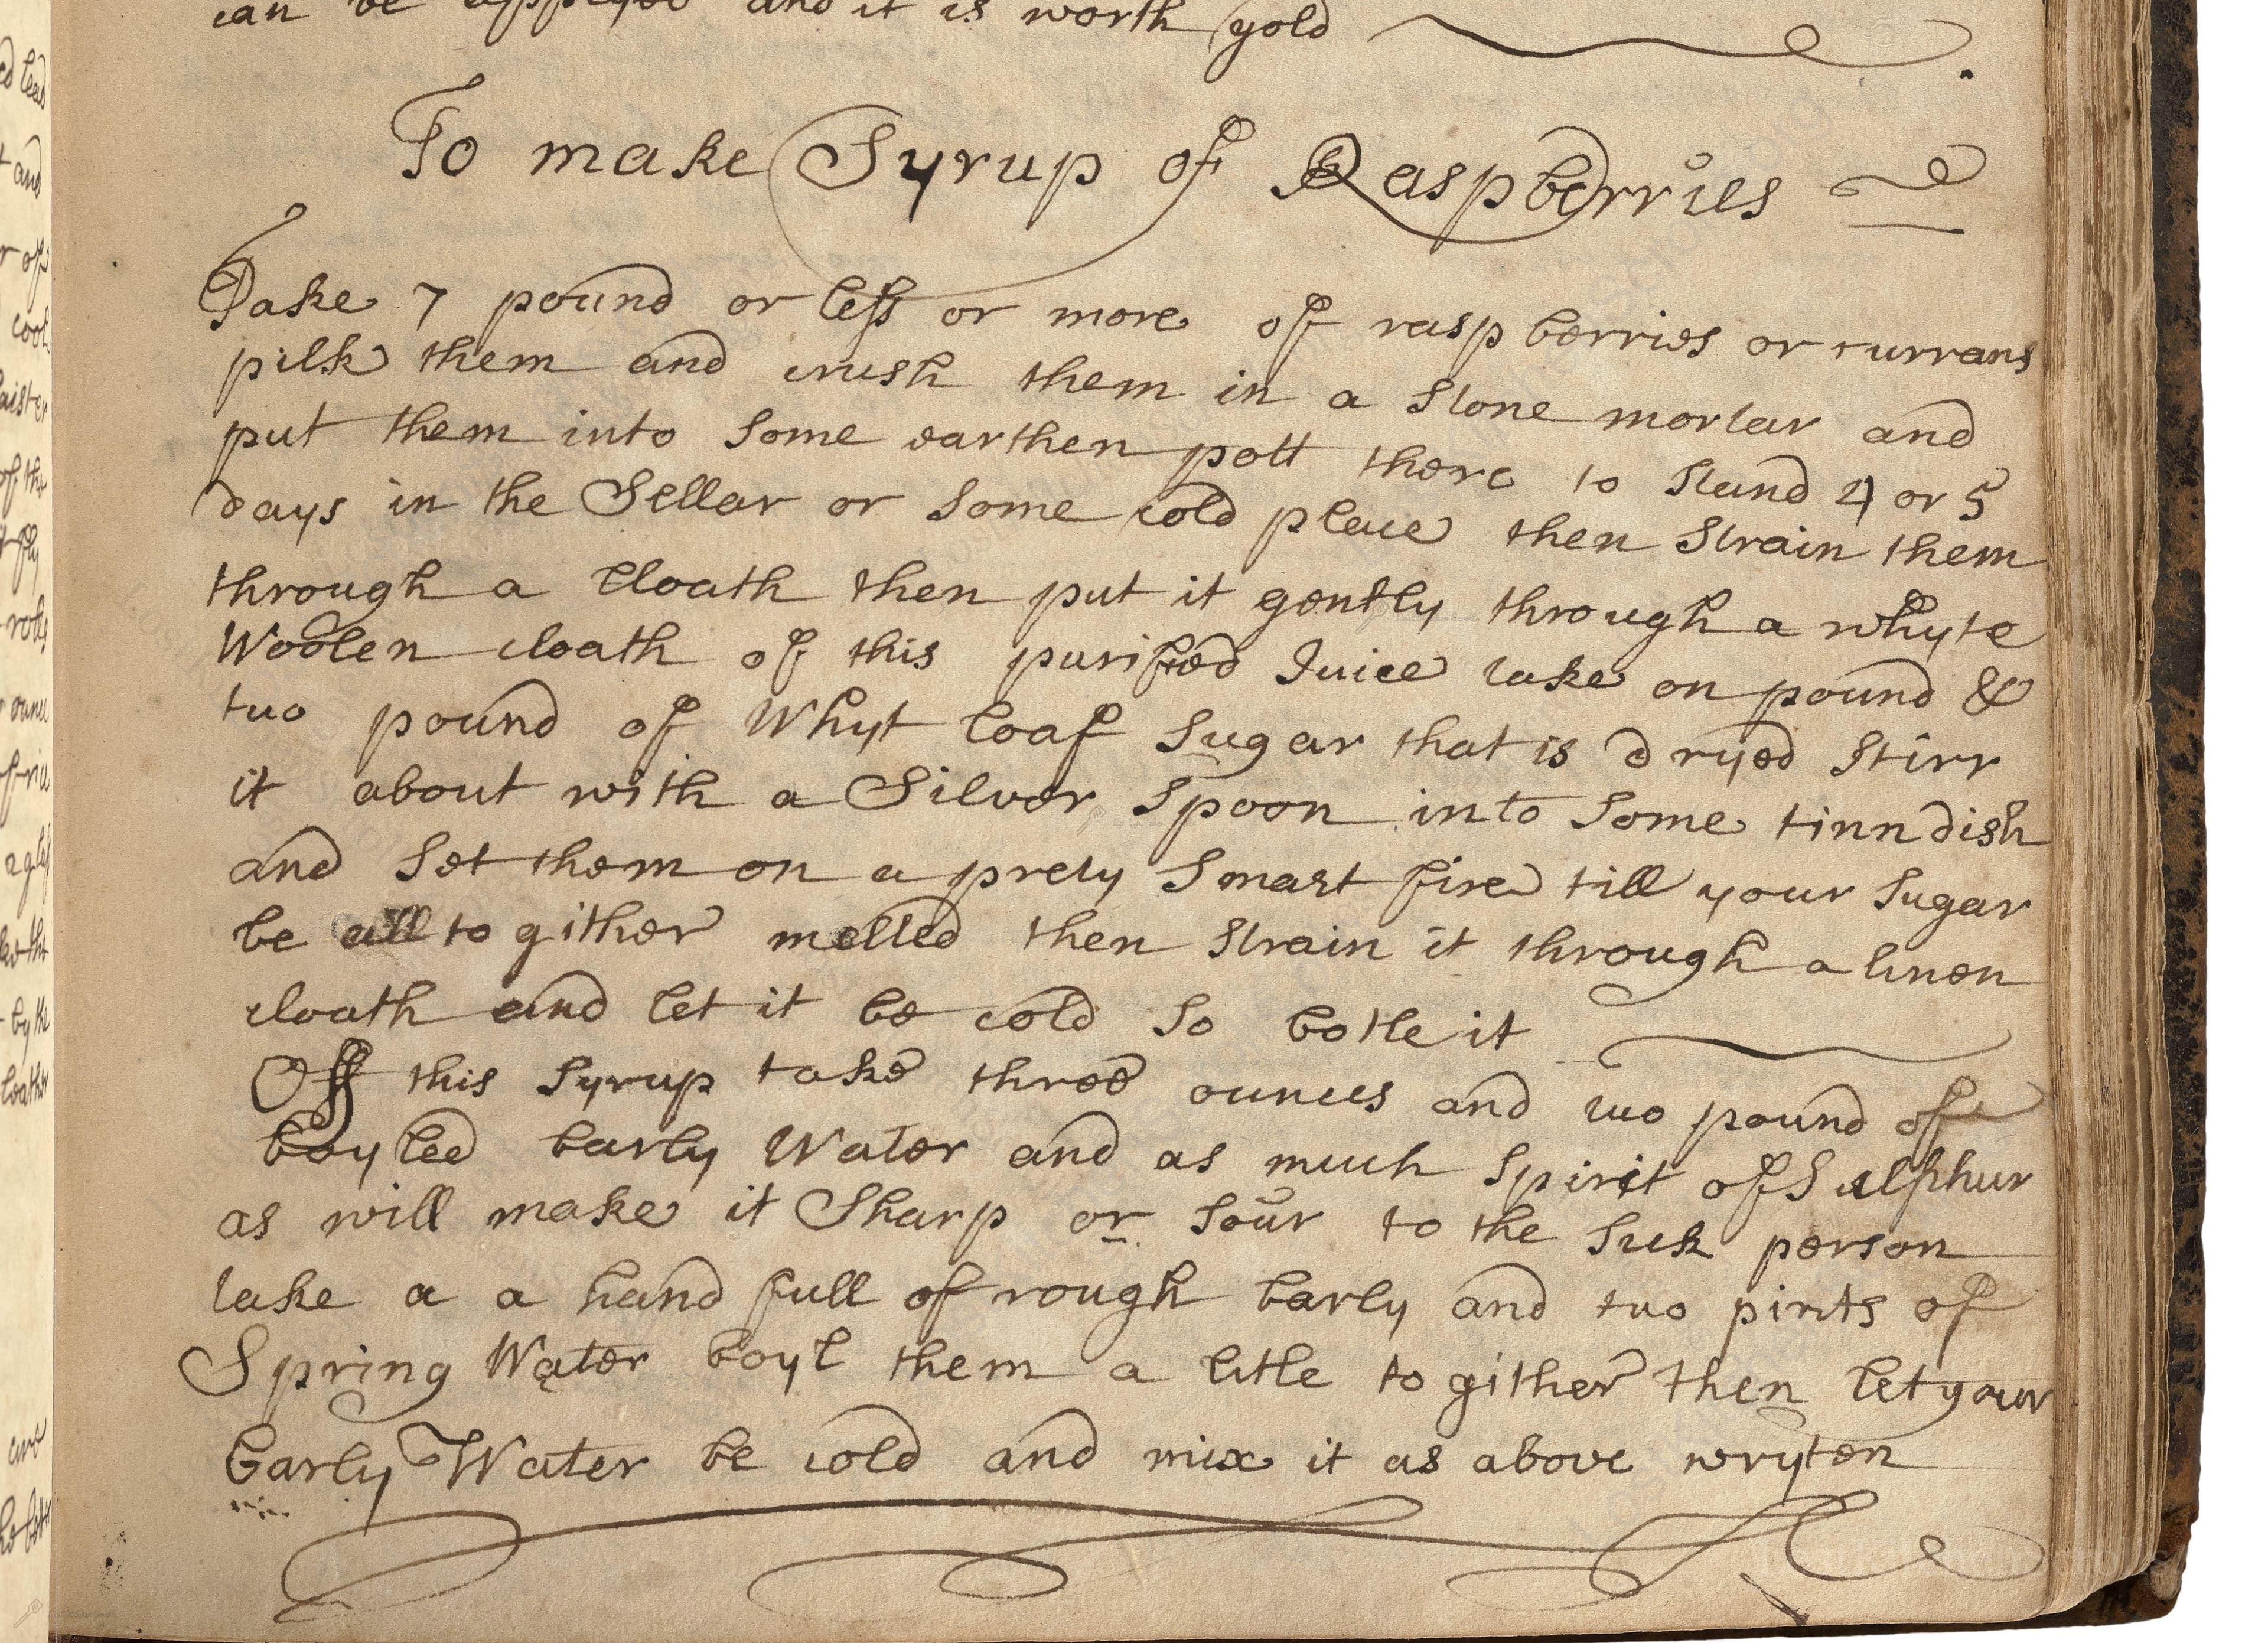 can be applyed and it is worth gold
To make Syrup of Raspberries
Take 7 pound or less or more of raspberries or currans
pick them and crush them in a stone mortar and
put them into some earthen pott there to stand 4 or 5
days in the Sellar or some cold place then strain them
through a cloath then put it gently through a whyte
Woolen cloath of this purified Juice take on pound &
tuo pound of Whyt loaf sugar that is dryed stirr
it about with a Silver spoon into some tinn dish
and set them on a prety smart fire till your sugar
be all to gither melted then strain it through a linen
cloath and let it be cold so botle it
Off this syrup take three ounces and tuo pound of
boyled barly Water and as much spirit of Sulphur
as will make it Sharp or sour to the sick person
take a a hand full of rough barly and tuo pints of
Spring Water boyl them a litle to gither then let your
barly Water be cold and mix it as above wryten